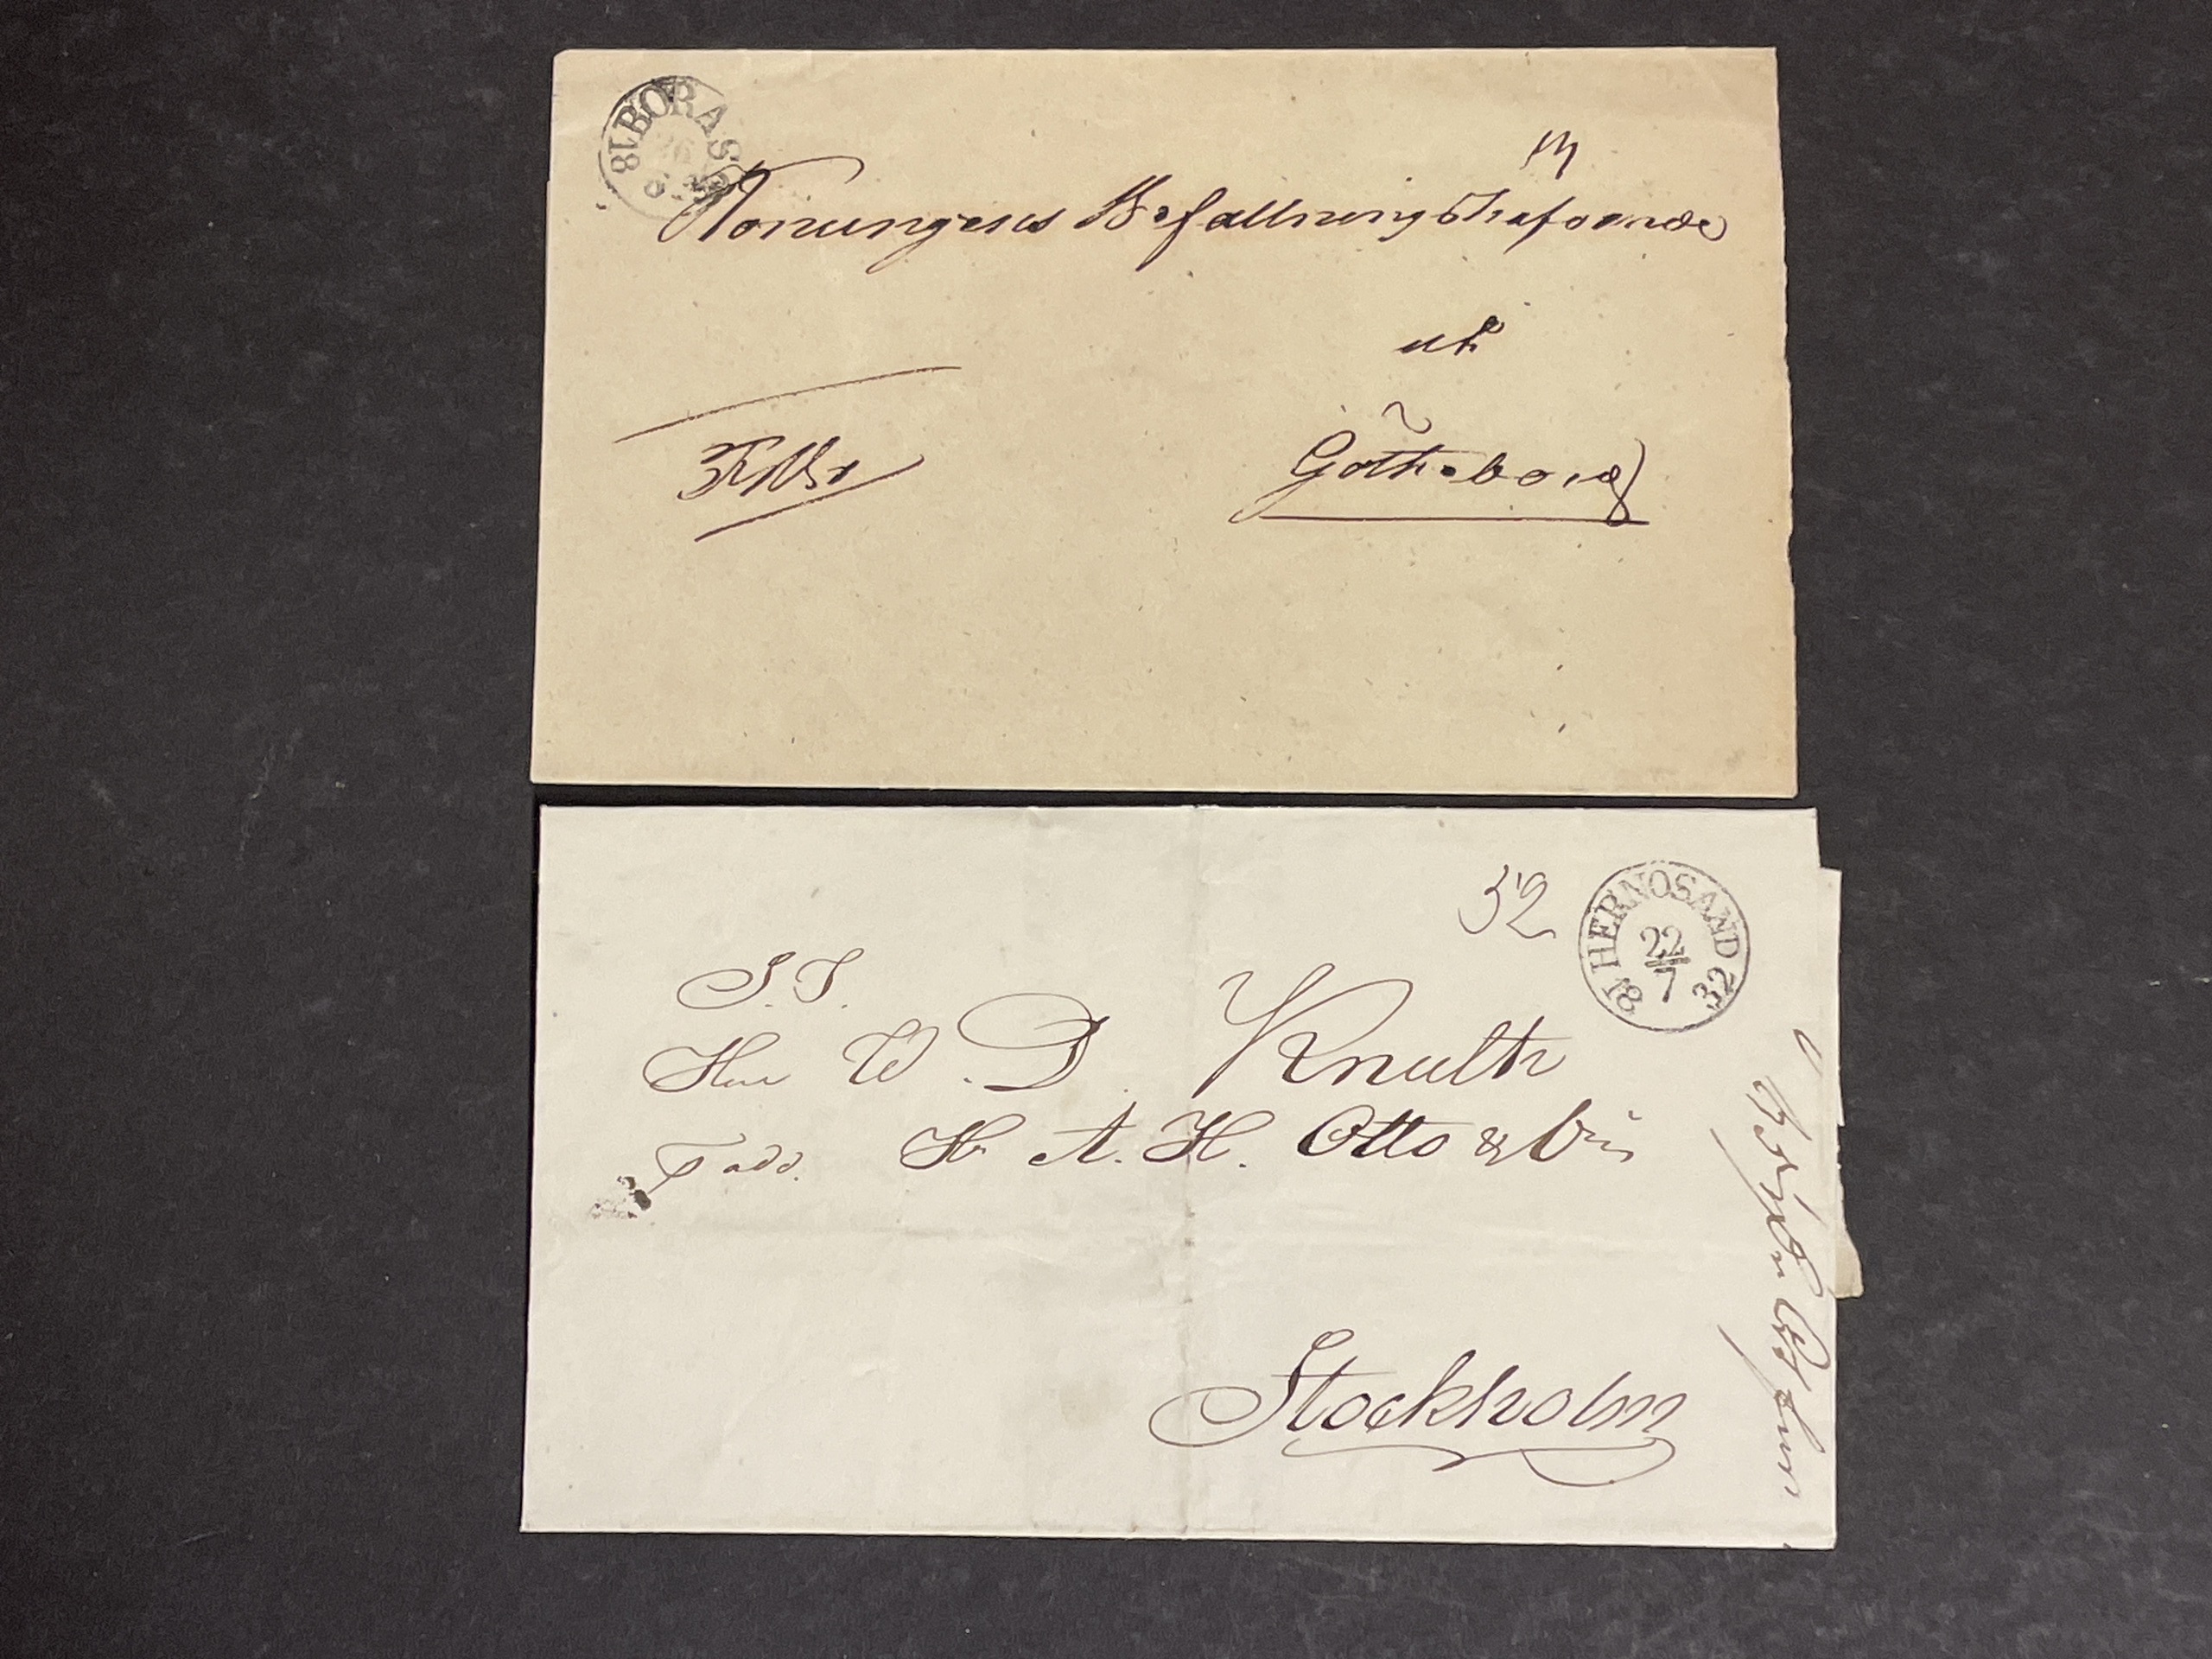 18 BORAS
Konungens Befallningshafvande
uti
Götheborg
HERNOSAND
22
7
18 32
32
S. T.
Herr W. D. Knulth
p add. Hr A. H. Otto &
Stockholm